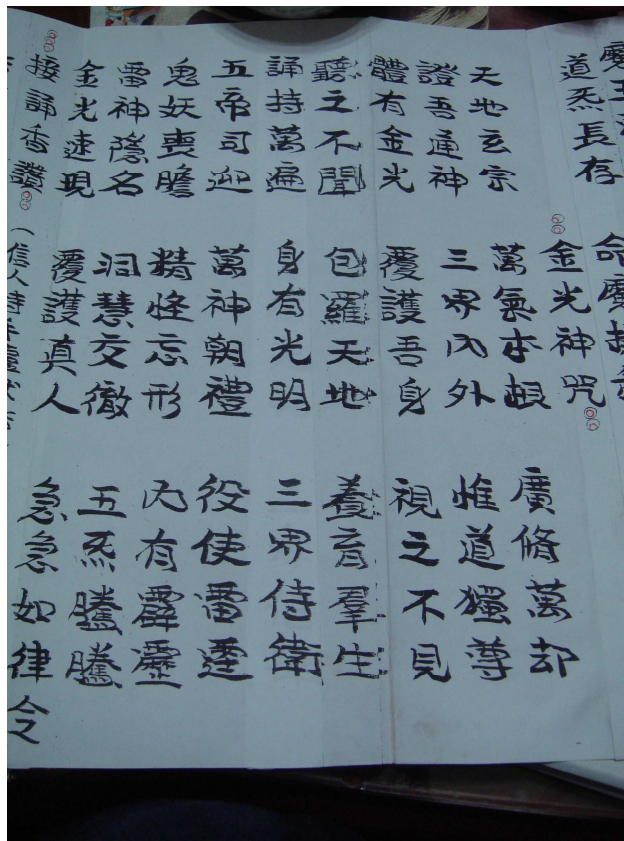 道炁長存
金光神咒
天地玄宗 萬氣本根 廣脩萬却
證吾通神 三界內外 惟道獨尊
體有金光 覆護吾身 視之不見
聽之不聞 包羅天地 養育羣生
誦持萬遍 身有光明 三界侍衛
五帝司迎 萬神朝禮 役使雷霆
鬼妖喪膽 精怪忘形 內有霹靂
雷神隱名 洞慧交徹 五炁騰騰
金光速現 覆護真人 急急如律令
接誦香讚